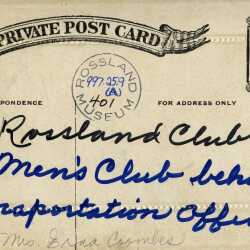 PRIVATE POST CARD
ROSSLAND
997.259
(A)
401
MUSEUM
PONDENCE
FOR ADDRESS ONLY
Rossland Club
Men's Club beh
nsportation Offi
Mrs. Coombes